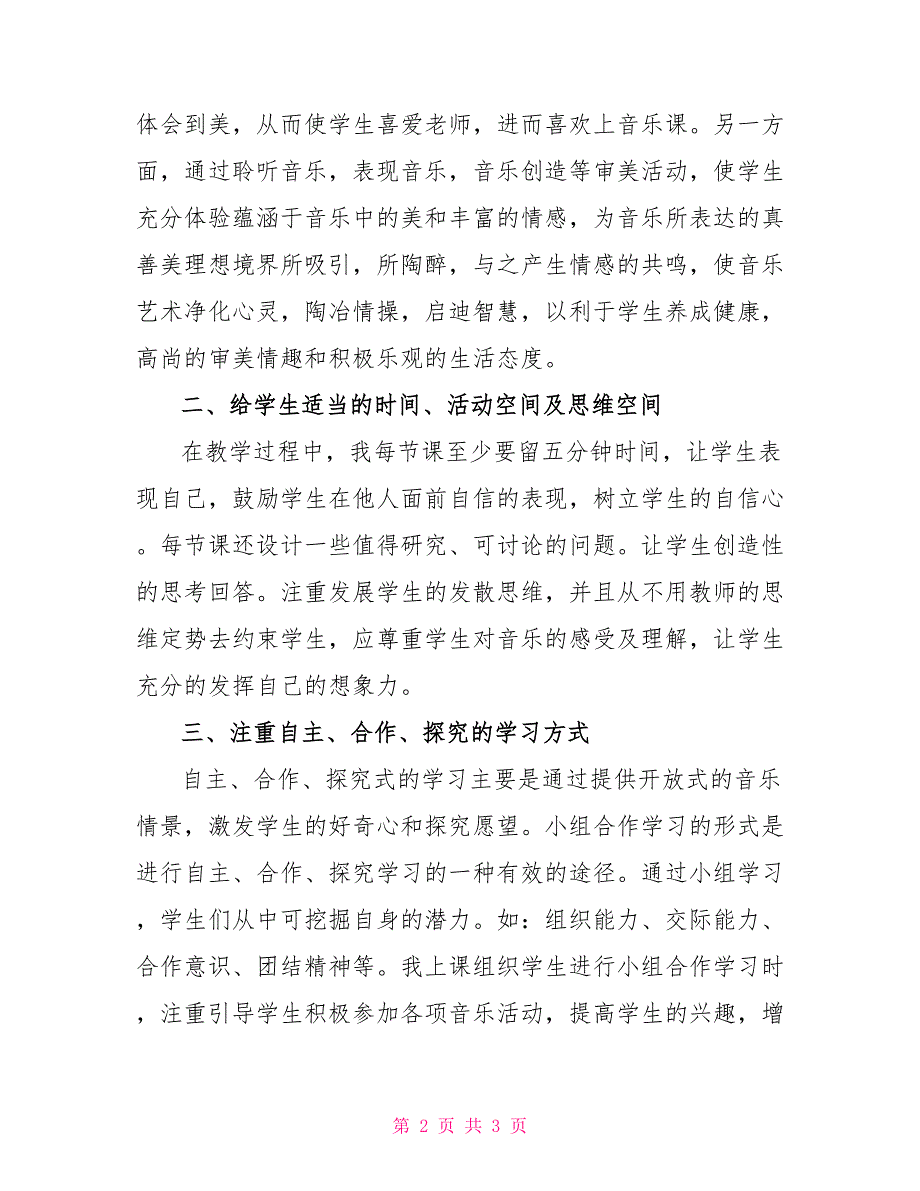 体会到美，从而使学生喜爱老师，进而喜欢上音乐课。另一方
面，通过聆听音乐，表现音乐，音乐创造等审美活动，使学生
充分体验蕴涵于音乐中的美和丰富的情感，为音乐所表达的真
善美理想境界所吸引，所陶醉，与之产生情感的共鸣，使音乐
艺术净化心灵，陶冶情操，启迪智慧，以利于学生养成健康，
高尚的审美情趣和积极乐观的生活态度。
二、给学生适当的时间、活动空间及思维空间
在教学过程中，我每节课至少要留五分钟时间，让学生表
现自己，鼓励学生在他人面前自信的表现，树立学生的自信心
。每节课还设计一些值得研究、可讨论的问题。让学生创造性
的思考回答。注重发展学生的发散思维，并且从不用教师的思
维定势去约束学生，应尊重学生对音乐的感受及理解，让学生
充分的发挥自己的想象力。
三、注重自主、合作、探究的学习方式
自主、合作、探究式的学习主要是通过提供开放式的音乐
情景，激发学生的好奇心和探究愿望。小组合作学习的形式是
进行自主、合作、探究学习的一种有效的途径。通过小组学习
，学生们从中可挖掘自身的潜力。如：组织能力、交际能力、
合作意识、团结精神等。我上课组织学生进行小组合作学习时
，注重引导学生积极参加各项音乐活动，提高学生的兴趣，增
第 2 页 共 3 页